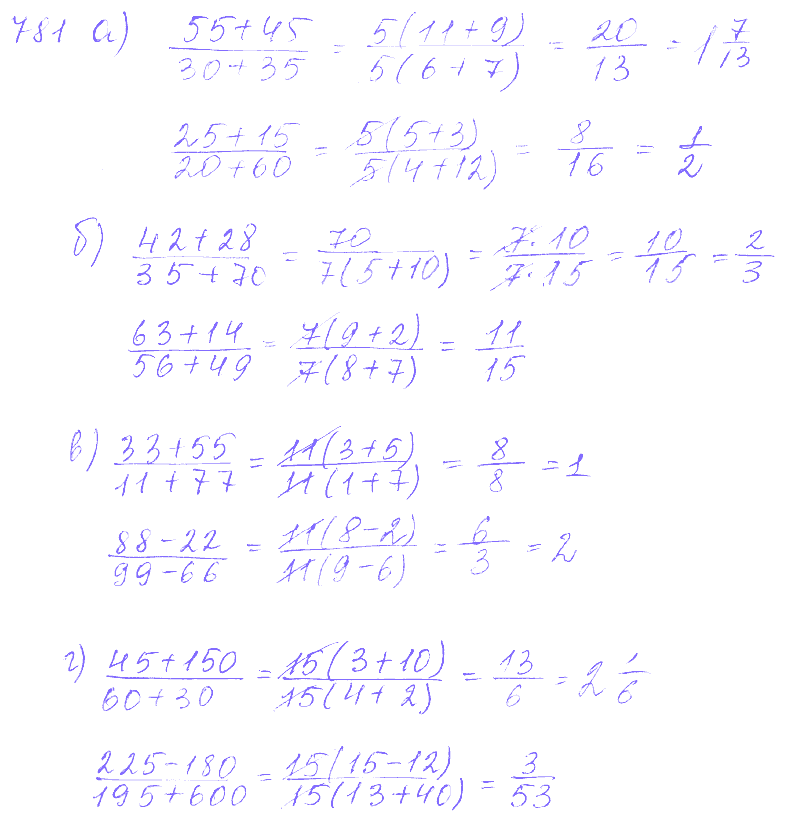 781 а) (55+45)/(30+35) = 5(11+9)/5(6+7) = 20/13 = 1 7/13
(25+15)/(20+60) = 5(5+3)/5(4+12) = 8/16 = 1/2
б) (42+28)/(35+70) = 70/7(5+10) = 7·10/7·15 = 10/15 = 2/3
(63+14)/(56+49) = 7(9+2)/7(8+7) = 11/15
в) (33+55)/(11+77) = 11(3+5)/11(1+7) = 8/8 = 1
(88-22)/(99-66) = 11(8-2)/11(9-6) = 6/3 = 2
г) (45+150)/(60+30) = 15(3+10)/15(4+2) = 13/6 = 2 1/6
(225-180)/(195+600) = 15(15-12)/15(13+40) = 3/53